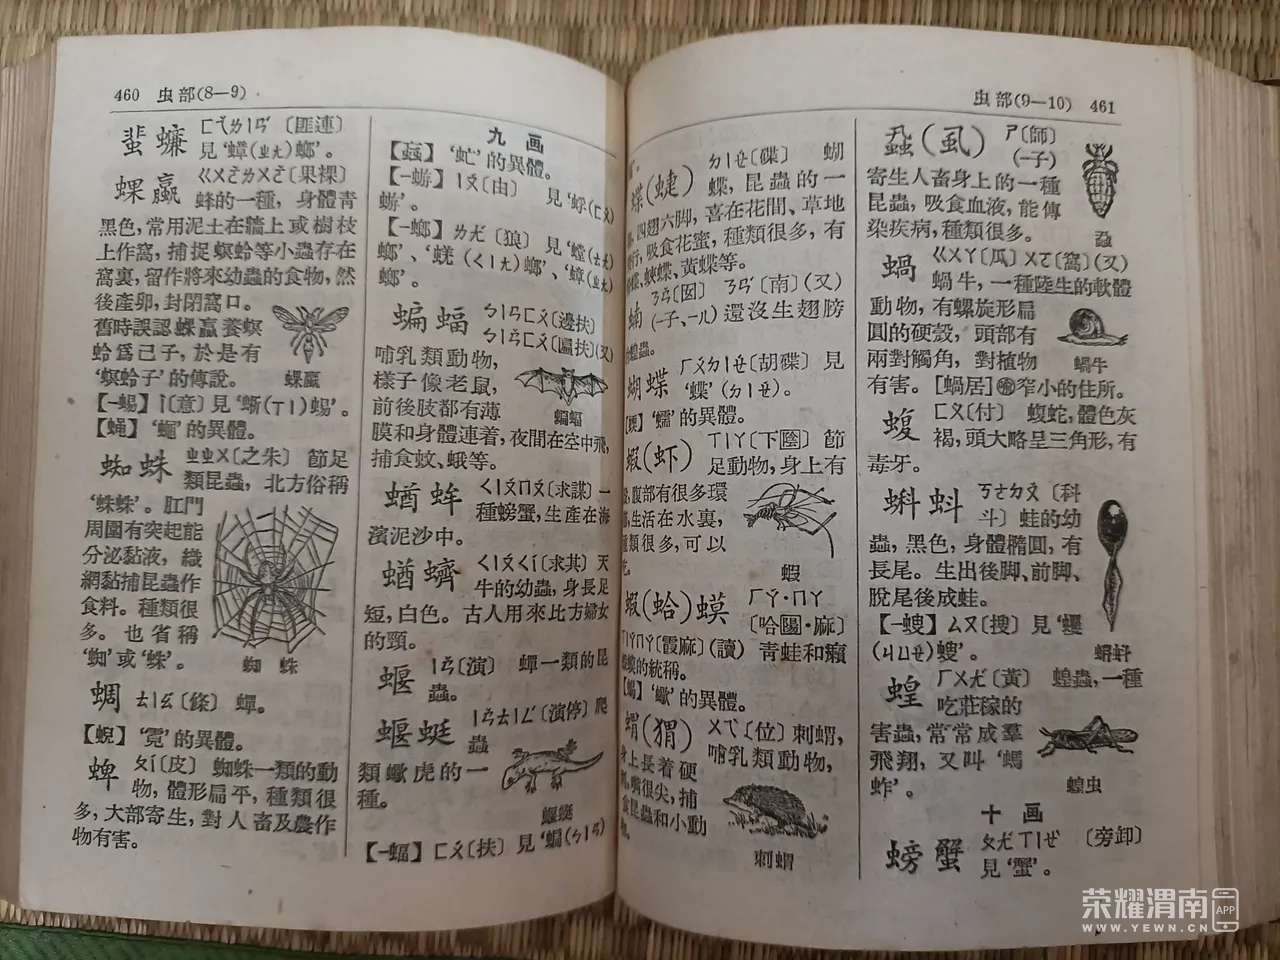 460 虫部(8—9)
蜚蠊 ㄈㄟˇㄌㄧㄢˊ〔匪連〕
見‘蟑(ㄓㄤ)螂’。
蜾蠃 ㄍㄨㄛˇㄌㄨㄛˇ〔果裸〕
蜂的一種，身體青
黑色，常用泥土在牆上或樹枝
上作窩，捕捉螟蛉等小蟲存在
窩裏，留作將來幼蟲的食物，然
後產卵，封閉窩口。
舊時誤認蜾蠃養螟
蛉爲己子，於是有
‘螟蛉子’的傳說。
蜾蠃
【—蜴】ㄧˋ〔意〕見‘蜥(ㄒㄧ)蜴’。
【蝇】‘蠅’的異體。
蜘蛛 ㄓㄓㄨ〔之朱〕節足
類昆蟲，北方俗稱
‘蛛蛛’。肛門
周圍有突起能
分泌黏液，織
網黏捕昆蟲作
食料。種類很
多。也省稱
‘蜘’或‘蛛’。
蜘蛛
蜩 ㄊㄧㄠˊ〔條〕蟬。
【蜺】‘霓’的異體。
蜱 ㄆㄧˊ〔皮〕蜘蛛一類的動
物，體形扁平，種類很
多，大部寄生，對人畜及農作
物有害。
九画
【蝱】‘虻’的異體。
【—蝣】ㄧㄡˊ〔由〕見‘蜉(ㄈㄨˊ)
蝣’。
【—螂】ㄌㄤˊ〔狼〕見‘螳(ㄊㄤˊ)
螂’、‘蜣(ㄑㄧㄤ)螂’、‘蟑(ㄓㄤ)
螂’。
蝙蝠 ㄅㄧㄢㄈㄨˊ〔邊扶〕
ㄅㄧㄢˇㄈㄨˊ〔匾扶〕(又)
哺乳類動物，
樣子像老鼠，
前後肢都有薄
膜和身體連着，夜間在空中飛，
捕食蚊、蛾等。
蝙蝠
蝤蛑 ㄑㄧㄡˊㄇㄡˊ〔求謀〕一
種螃蟹，生產在海
濱泥沙中。
蝤蠐 ㄑㄧㄡˊㄑㄧˊ〔求其〕天
牛的幼蟲，身長足
短，白色。古人用來比方婦女
的頸。
蝘 ㄧㄢˇ〔演〕蟬一類的昆
蟲。
蝘蜓 ㄧㄢˇㄊㄧㄥˊ〔演停〕爬
蟲
類蠍虎的一
種。
蝘蜓
【—蝠】ㄈㄨˊ〔扶〕見‘蝙(ㄅㄧㄢ)
虫部(9—10) 461
蝶(蜨) ㄉㄧㄝˊ〔碟〕蝴
蝶，昆蟲的一
四翅六脚，喜在花間、草地
行，吸食花蜜，種類很多，有
蝶、蛺蝶、黃蝶等。
蝻 ㄋㄢˇ〔囡〕ㄋㄢˊ〔南〕(又)
(—子、—儿)還沒生翅膀
蟲。
蝴蝶 ㄏㄨˊㄉㄧㄝˊ〔胡碟〕見
‘蝶’(ㄉㄧㄝˊ)。
【蝡】‘蠕’的異體。
蝦(虾) ㄒㄧㄚ〔下陰〕節
足動物，身上有
腹部有很多環
生活在水裏，
種類很多，可以
蝦
蝦(蛤)蟆 ㄏㄚˊ·ㄇㄚ
〔哈陽·麻〕
ㄒㄧㄚˊㄇㄚˊ〔霞麻〕(讀)青蛙和癩
蟆的統稱。
【蝎】‘蠍’的異體。
蝟(猬) ㄨㄟˋ〔位〕刺蝟，
哺乳類動物，
身上長着硬
嘴很尖，捕
食昆蟲和小動
物。
刺蝟
蝨(虱) ㄕ〔師〕
(—子)
寄生人畜身上的一種
昆蟲，吸食血液，能傳
染疾病，種類很多。
蝨
蝸 ㄍㄨㄚ〔瓜〕ㄨㄛ〔窩〕(又)
蝸牛，一種陸生的軟體
動物，有螺旋形扁
圓的硬殼，頭部有
兩對觸角，對植物
有害。[蝸居]窄小的住所。
蝸牛
蝮 ㄈㄨˋ〔付〕蝮蛇，體色灰
褐，頭大略呈三角形，有
毒牙。
蝌蚪 ㄎㄜㄉㄡˇ〔科
斗〕蛙的幼
蟲，黑色，身體橢圓，有
長尾。生出後脚、前脚、
脫尾後成蛙。
蝌蚪
【—螋】ㄙㄡ〔搜〕見‘蠼
(ㄐㄩㄝˊ)螋’。
蝗 ㄏㄨㄤˊ〔黃〕蝗蟲，一種
吃莊稼的
害蟲，常常成羣
飛翔，又叫‘螞
蚱’。
蝗虫
十画
螃蟹 ㄆㄤˊㄒㄧㄝˋ〔旁卸〕
見‘蟹’。
荣耀渭南APP
WWW.YEWN.CN